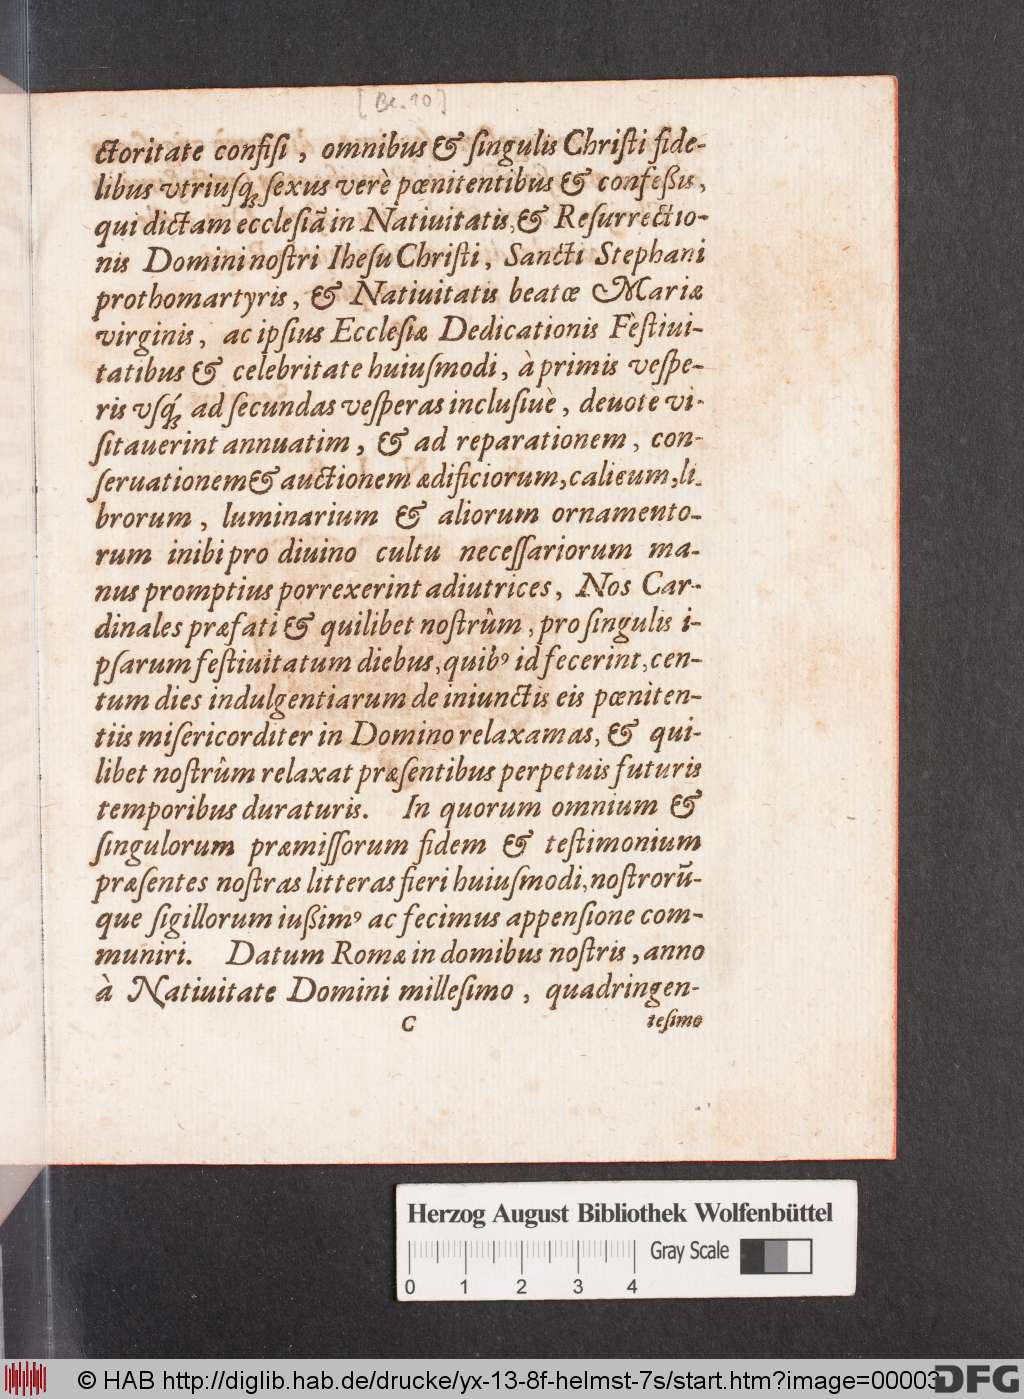 [Bl. 10]
ctoritate confisi, omnibus & singulis Christi fide-
libus vtriusq́ꝫ sexus verè pœnitentibus & confeßis,
qui dictam ecclesiã in Natiuitatis, & Resurrectio-
nis Domini nostri Ihesu Christi, Sancti Stephani
prothomartyris, & Natiuitatis beatœ Mariæ
virginis, ac ipsius Ecclesiæ Dedicationis Festiui-
tatibus & celebritate huiusmodi, à primis vespe-
ris vsq́ꝫ ad secundas vesperas inclusiuè, deuote vi-
sitauerint annuatim, & ad reparationem, con-
seruationem & auctionem ædificiorum, calicum, li-
brorum, luminarium & aliorum ornamento-
rum inibi pro diuino cultu necessariorum ma-
nus promptius porrexerint adiutrices, Nos Car-
dinales præfati & quilibet nostrûm, pro singulis i-
psarum festiuitatum diebus, quibꝰ id fecerint, cen-
tum dies indulgentiarum de iniunctis eis pœniten-
tiis misericorditer in Domino relaxamas, & qui-
libet nostrûm relaxat præsentibus perpetuis futuris
temporibus duraturis. In quorum omnium &
singulorum præmissorum fidem & testimonium
præsentes nostras litteras fieri huiusmodi, nostrorũ-
que sigillorum iußimꝰ ac fecimus appensione com-
muniri. Datum Romæ in domibus nostris, anno
à Natiuitate Domini millesimo, quadringen-
C tesimo
Herzog August Bibliothek Wolfenbüttel
Gray Scale
0 1 2 3 4
© HAB http://diglib.hab.de/drucke/yx-13-8f-helmst-7s/start.htm?image=00003
DFG